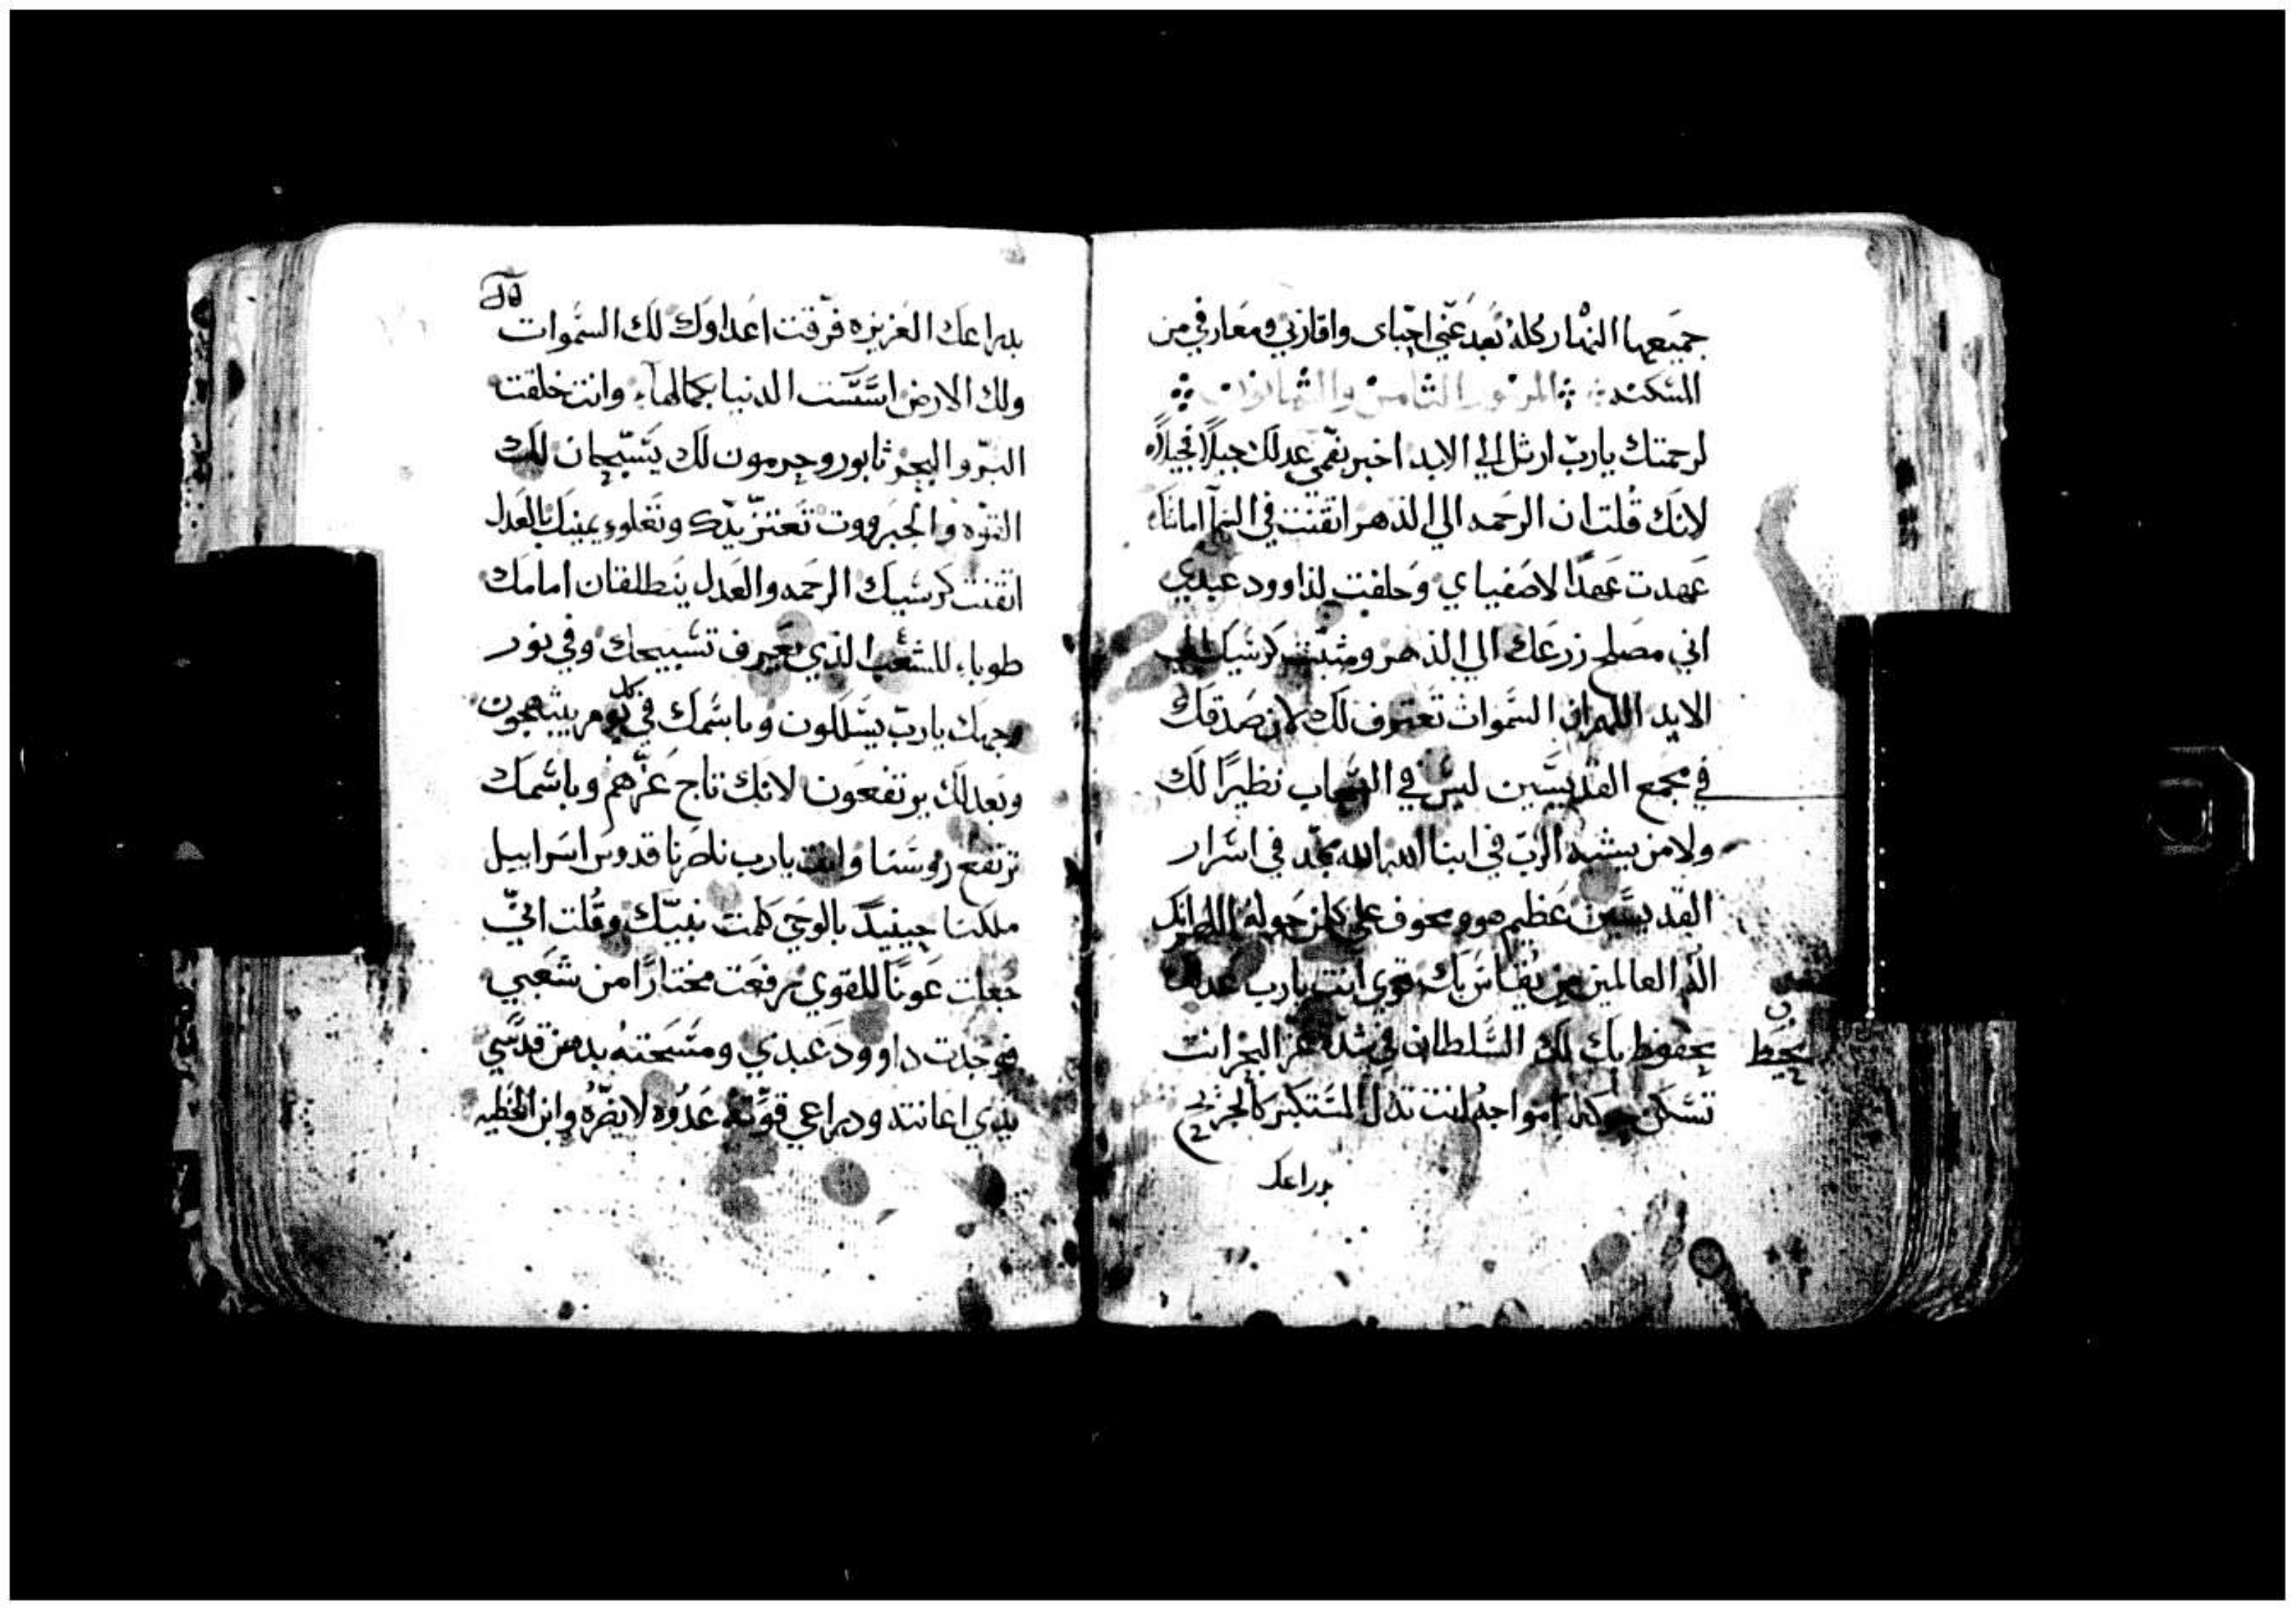 جميعها النهار كله بعد عني احباى واقاربي ومعارفي من
المسكنه ❖ المزمور الثامن والثمانون ❖
لرحمتك يا رب ارتل الي الابد اخبر بفمي عدلك جيلاً فجيلاً
لانك قلت ان الرحمه الي الدهر اتقنت في السما امانتك
عهدت عهدًا لاصفياي وحلفت لداوود عبدي
اني مصلح زرعك الي الدهر ومثبت كرسيك الي
الابد اللهم ان السموات تعترف لك لان صدقك
في مجمع القديسين ليس في السحاب نظيرًا لك
ولا من يشبه الرب في ابنا الله الله ممجد في اسرار
القديسين عظيم هو ومخوف علي كل من حوله اللهم انك
اله العالمين من يقاس بك قوي انت يا رب عدلك
يحفوظ بك لك السلطان في شدة عز البحر انت
يحيط
تسكن حركة امواجه انت تذل المستكبر كالجريح
بدراعك
بدراعك العزيزه فرقت اعداوك لك السموات
ولك الارض اسست الدنيا بكمالها وانت خلقت
البر والبحر ثابور وحرمون لك يسبحان لك
القوه والجبروت تعتز يدك وتعلوا يمينك بالعدل
اتقنت كرسيك الرحمه والعدل ينطلقان امامك
طوباء للشعب الذي يعرف تسبيحك وفي نور
وجهك يا رب يسلكون وباسمك في كل يوم يبتهجون
وبعدلك يرتفعون لانك تاج عزهم وباسمك
ترتفع روسنا وانت يا رب ناصرنا قدوس اسراييل
ملكنا حينيد بالوحي كلمت نبيك وقلت اني
جعلت عونًا للقوي ورفعت مختارًا من شعبي
فوجدت داوود عبدي ومسحته بدهن قدسي
يدي اعانته ودراعي قوته عدوه لا يضره وابن الخطيه